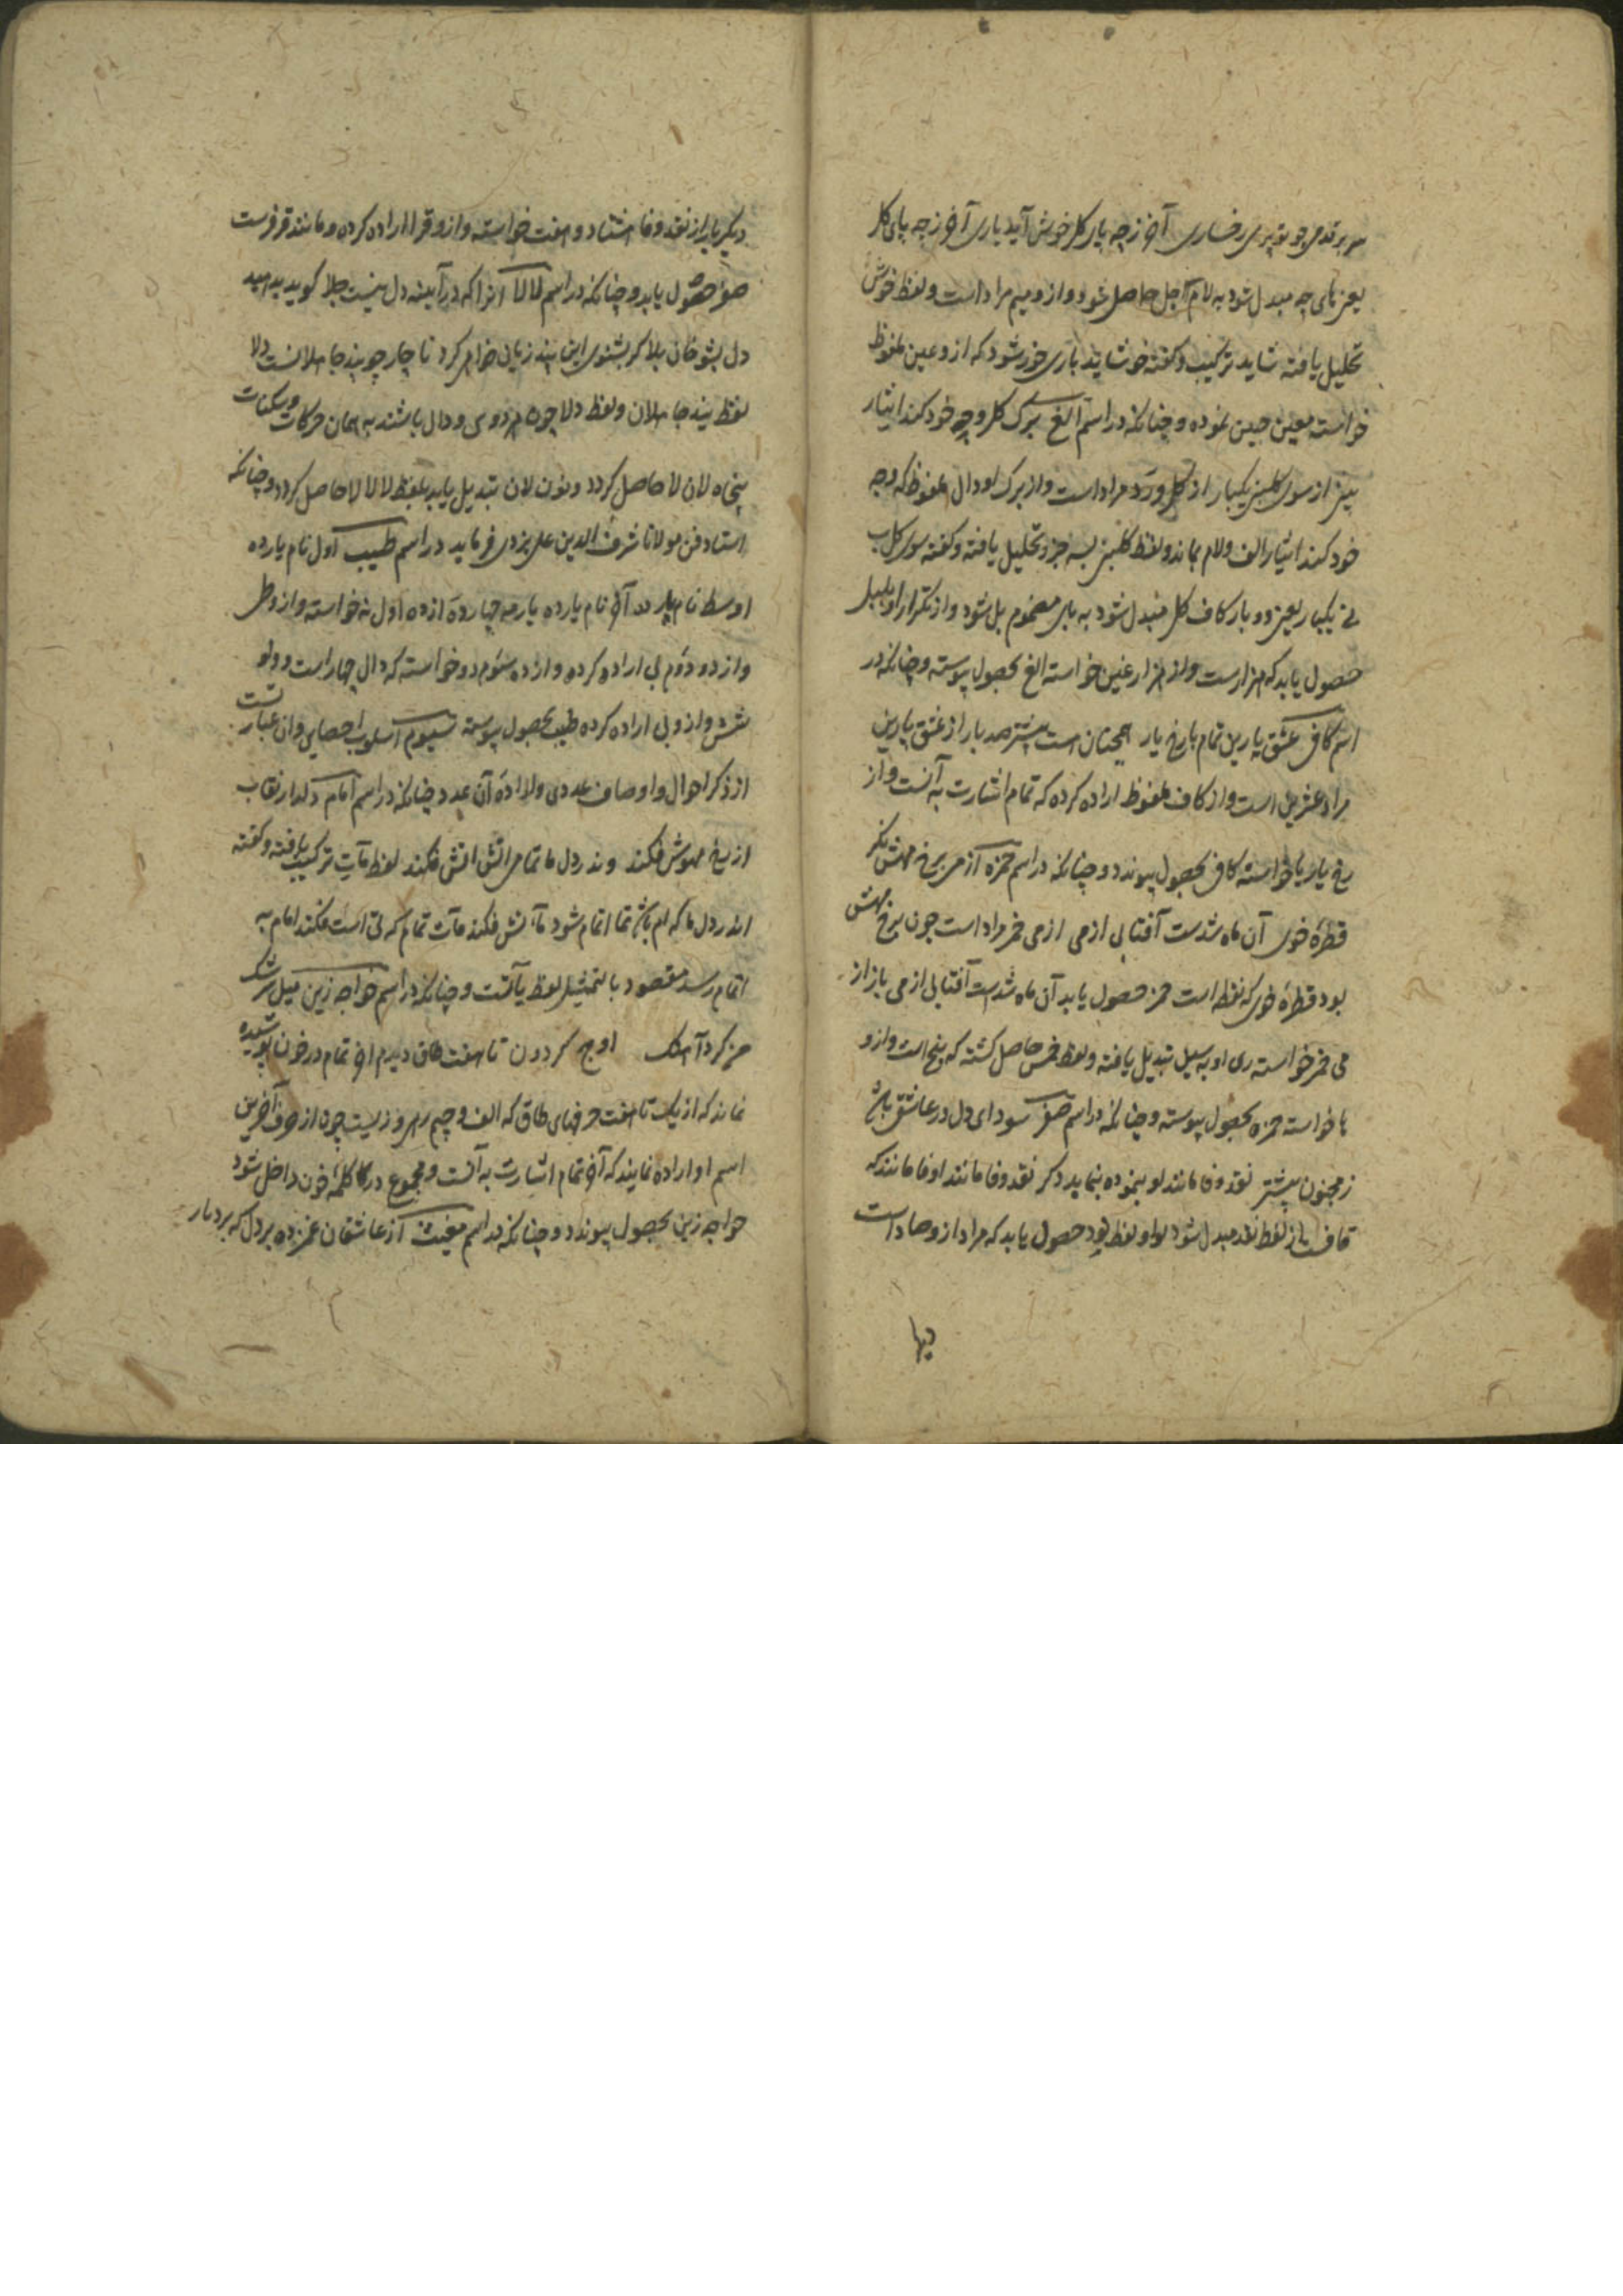 سر بر قدمی چو تو پری رخساری آخر زچه پای کل خوش آید باری آخر زچه پای کل
یعنی های چه مبدل شود به لام آجل حاصل شود و ازو میم مراد است و لفظ خوش
تحلیل یافته شاید ترکیب و کفته خوشاید باری خور شود که ازو عین ملفوظ
خواسته معین حین نموده و چنانکه در اسم الغ برک کل و چه خود کند ایثار
نیز از سوی کلبن یکبار از کل ورد مراد است و از برک او دال ملفوظ که وجه
خود کند ایثار الف و لام بماند و لفظ کلبن بسه جزو تحلیل یافته و کفته سوی کل ب
نی یکبار یعنی دو بار کاف کل مبدل شود به بای مضموم بل شود و از تکرار او بلبل
حصول یابد که هزارست و از هزار غین خواسته الغ بحصول پیوسته و چنانکه در
اسم کافی عشق پارین تمام با رخ یار همچنان است بیشتر صد بار از عشق پارین
مراد عشرین است و از کاف ملفوظ اراده کرده که تمام اشارت به آنست و از
رخ یار یا خواسته کافی بحصول پیوندد و چنانکه در اسم حمزه از می برخ مهش نکر
قطرهٔ خوی آن ماه شدست آفتابی از می از می خمر مراد است چون برخ مهش
بود قطرهٔ خوی که نقطه است حمز حصول یابد آن ماه شدست آفتابی از می باز از
می خمر خواسته ری او به سیل تبدیل یافته و لفظ خمس حاصل کشته که پنج است و ازو
ها خواسته حمزه بحصول پیوسته و چنانکه در اسم صفر سودای دل در عاشقی باشد
ز مجنون بیشتر نقد وفا مانند او بنموده بنماید دکر نقد وفا مانند او فا مانند که
قاف از لفظ نقد مبدل شود بواو لفظ نود حصول یابد که مراد ازو صاد است
دیها
دیکر بار از نقد وفا هشتاد و هفت خواسته و ازو قرا اراده کرده و مانند قر فرست
صفر حصول یابد و چنانکه در اسم لالا انرا که در آیینه دل نیست جلا کوید به امید
دل بشو خان بلا کر بشنوی این پند زیان خواهی کرد ناچار چو پند جاهلانست دلا
لفظ پند جاهلان و لفظ دلا چون هر دو سی و دال باشند به همان حرکات و سکنات
پنجاه لان لا حاصل کردد و نون لان تبدیل یابد بلفظ لا لالا حاصل کردد و چنانکه
استاد فن مولانا شرف الدین علی یزدی فرماید در اسم طبیب اول نام یار ده
اوسط نام یار ده آخر نام یار ده یار مه چهارده از ده اول نه خواسته و ازو ط
و از ده دوم بی اراده کرده و از ده سوم دو خواسته که دال چهار است و واو
شش و ازو بی اراده کرده طبیب بحصول پیوسته سیوم اسلوب احصایی و ان عبارتست
از ذکر احوال و اوصاف عددی و لا ارادهٔ آن عدد چنانکه در اسم امام دلدار نقاب
از رخ مهوش فکند وندر دل ما تمامی اتش فکند لفظ مآت ترکیب یافته و کفته
اندر دل ما که ام باشد تما اتمام شود ما آتش فکند مآت تمام که تی است فکند امام به
اتمام رسد مقصود بالتمثیل لفظ مآتست و چنانکه در اسم خواجه زین میل سرشک
من کرد آهنک اوج کردون تا هفت طاق دیدم اخر تمام در خون پوشیده
نماند که از یک تا هفت حرفهای طاق که الف و جیم و هی و زیست چون از حرف آخرین
اسم او اراده نمایند که آخر تمام اشارت به آنست و مجموع در کلمهٔ خون داخل شود
خواجه زین بحصول پیوندد و چنانکه در اسم مغیث از عاشقان غمزده بر دل که برد بار